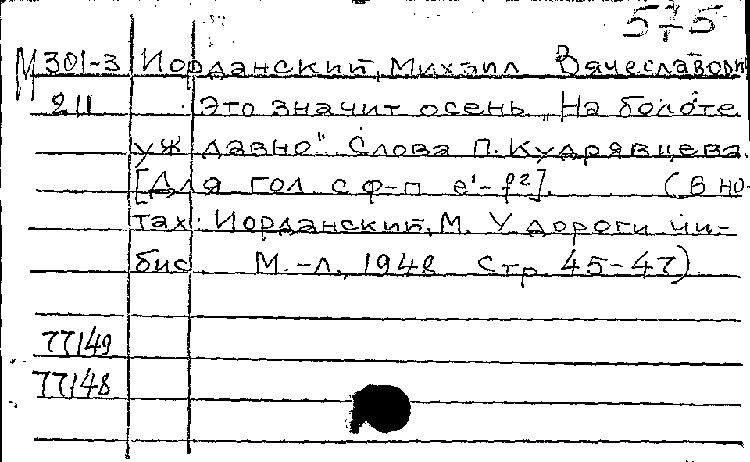 575
М 301-3 Иорданский, Михаил Вячеславович
211 Это значит осень „На болоте
уж давно" Слова П. Кудрявцева.
[Для гол. с ф-п e¹-f²]. (В но-
тах: Иорданский, М. У дороги чи-
бис. М.-Л., 1948 Стр. 45-47)
77149
77148